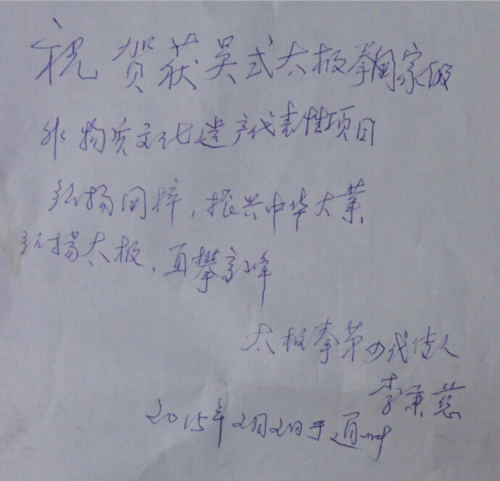 祝贺获吴式太极拳国家级
非物质文化遗产代表性项目
弘扬国粹，振兴中华大業
弘揚太极，直攀高峰
太极拳第四代传人
李秉慈
2015年2月2日于通州